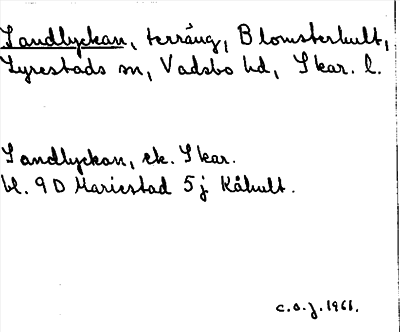 Sandlyckan, terräng, Blomsterhult,
Lyrestads sn, Vadsbo hd, Skar. l.
Sandlyckan, ek. Skar.
bl. 9D Mariestad 5j Kåhult.
C.O.J. 1966.